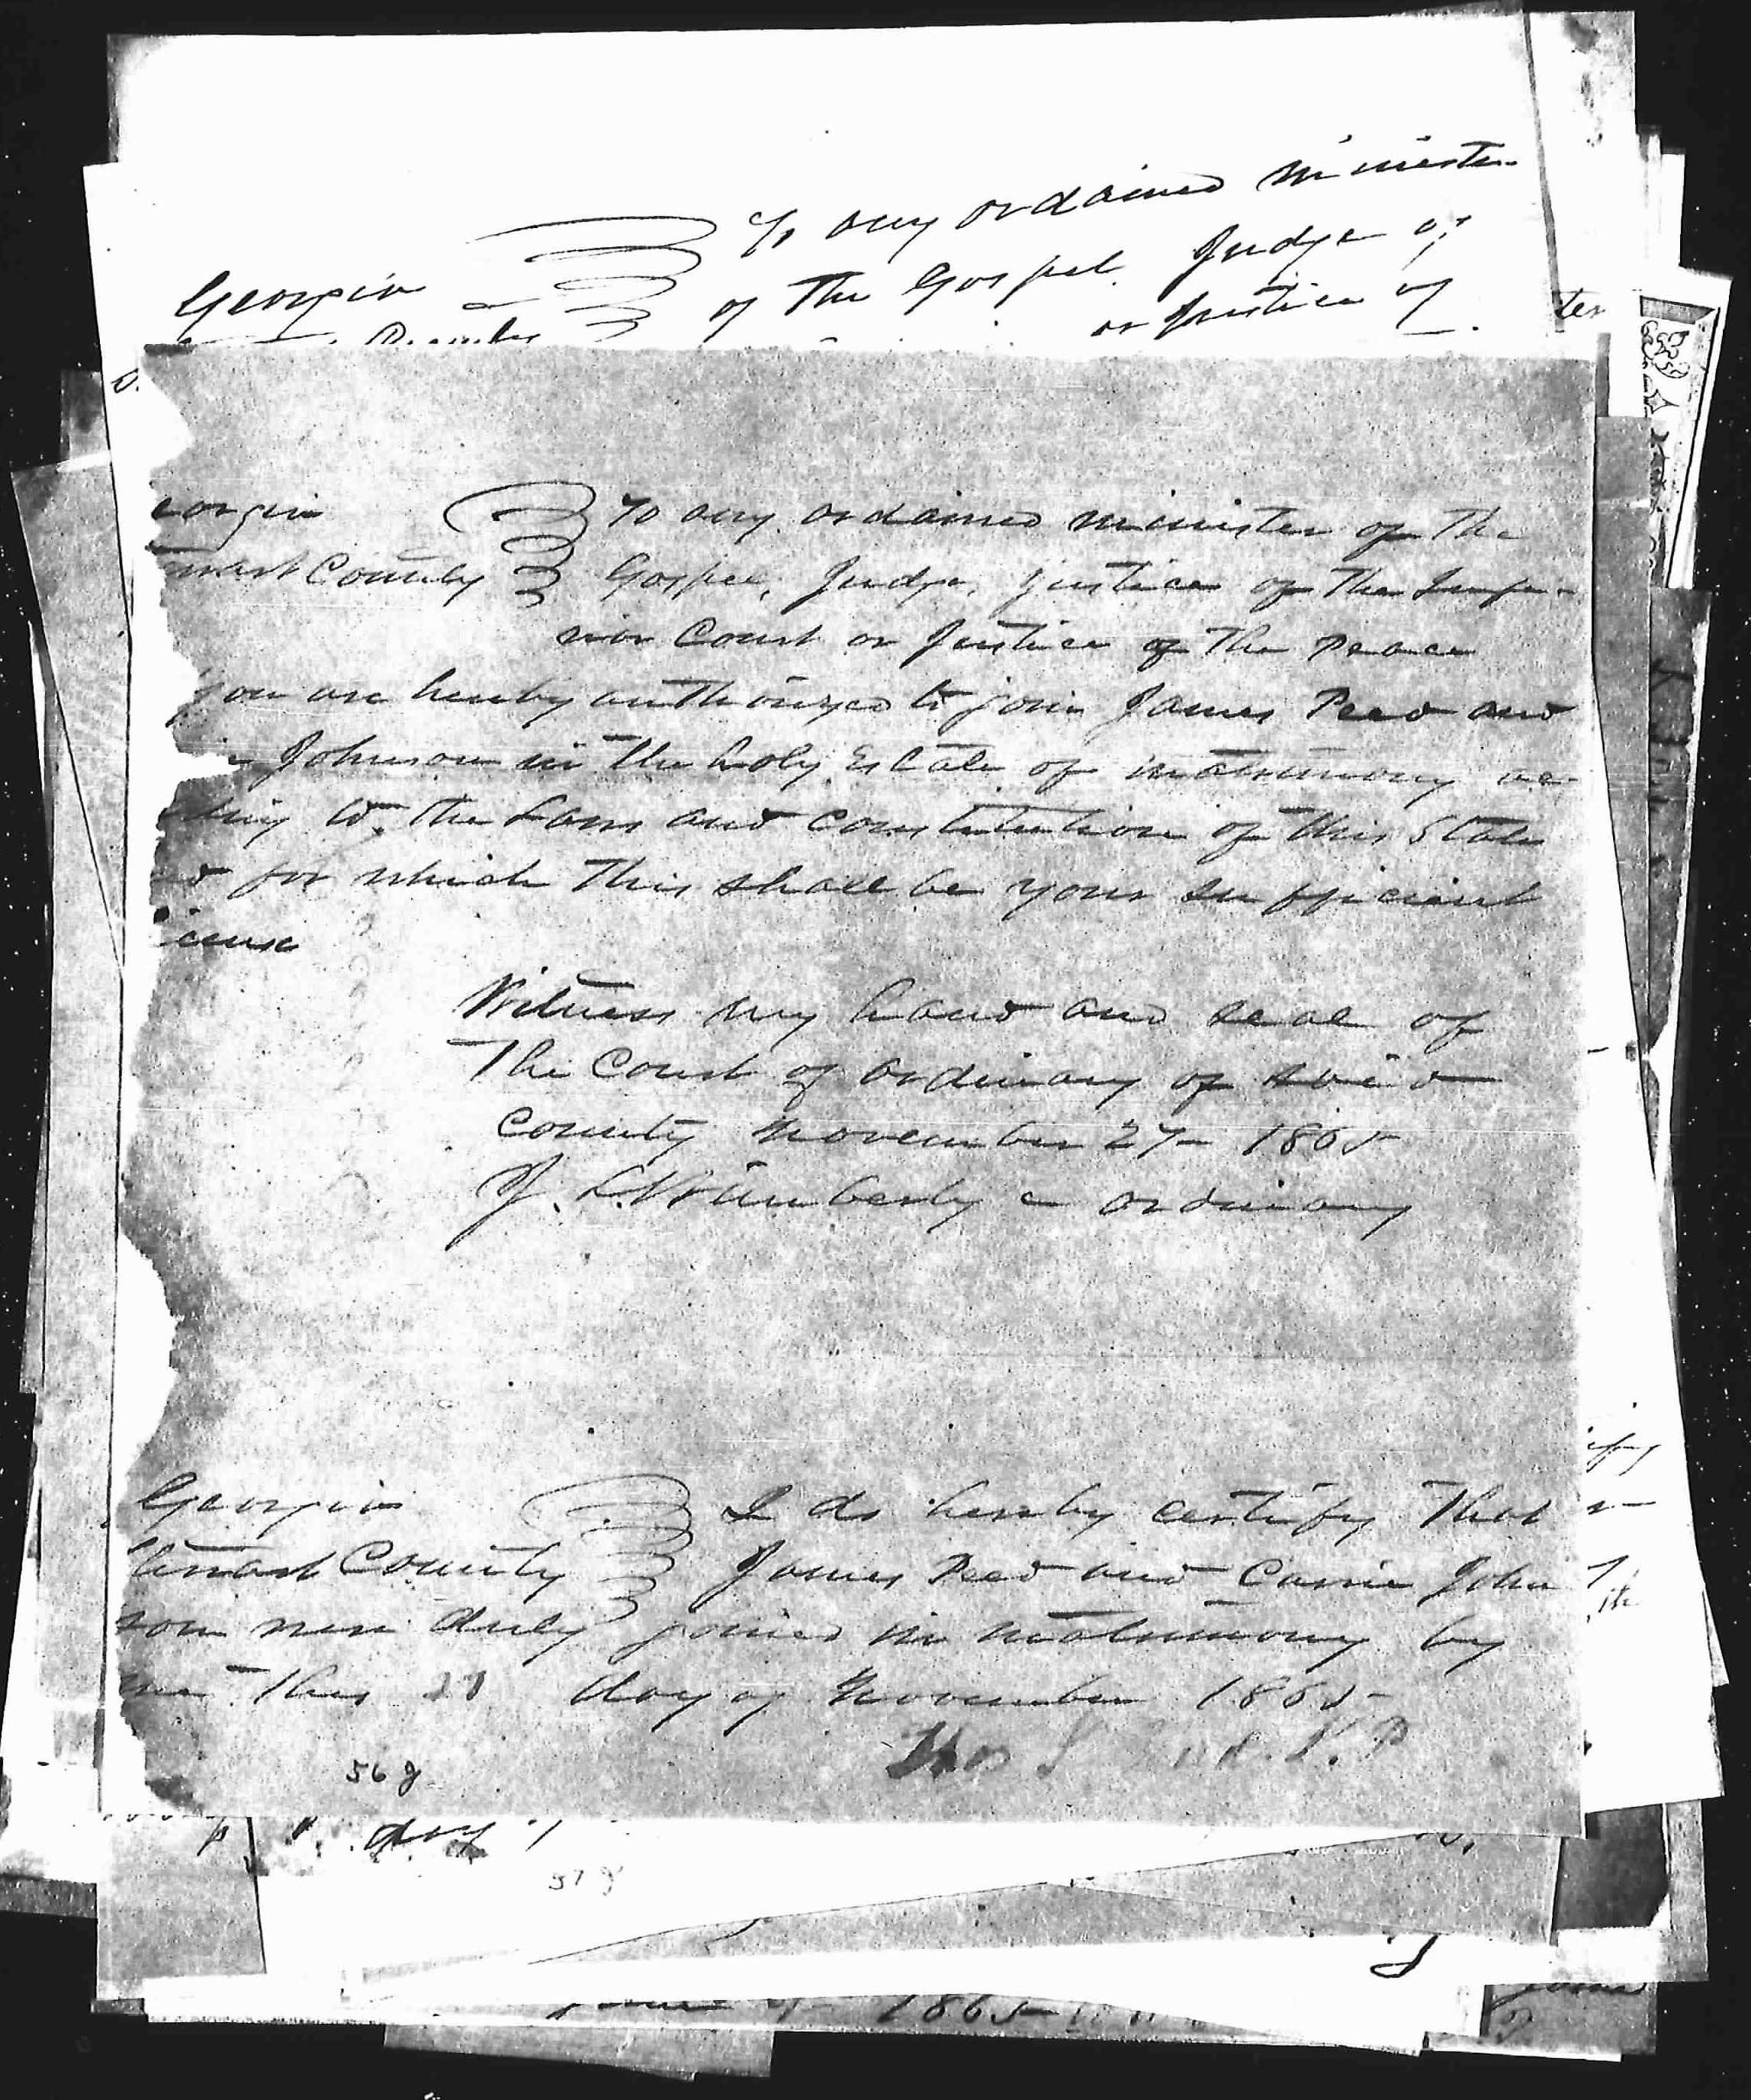 To any ordained minister
Georgia of the Gospel Judge of
or Justice of
ter
eorgia To any ordained minister of the
wart County Gospel, Judge, Justice of the Supe-
rior Court or Justice of the Peace
you are hereby authorized to join James Peed and
Johnson in the holy Estate of matrimony ac
ding to the Laws and constitution of this State
d for which this shall be your sufficient
icense
Witness my hand and seal of
The Court of ordinary of said
County November 27- 1865
J. L. Wimberly - ordinary
Georgia I do hereby certify that
tewart County James Peed and Carrie John
son were duly joined in matrimony by
me this day of November 1865
J.P.
568
day
578
1865